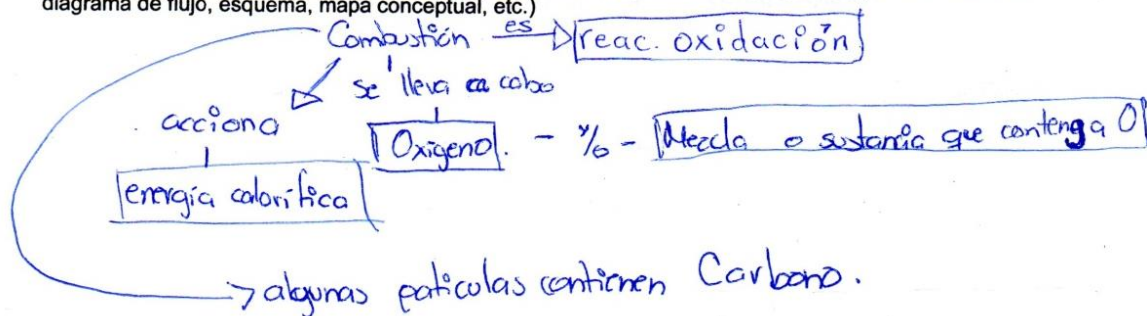 diagrama de flujo, esquema, mapa conceptual, etc.)
Combustión es reac. oxidación
se lleva a cabo
acciona
Oxigeno. - y/o - Mezcla o sustancia que contenga O
energía calorífica
algunas paticulas contienen Carbono.